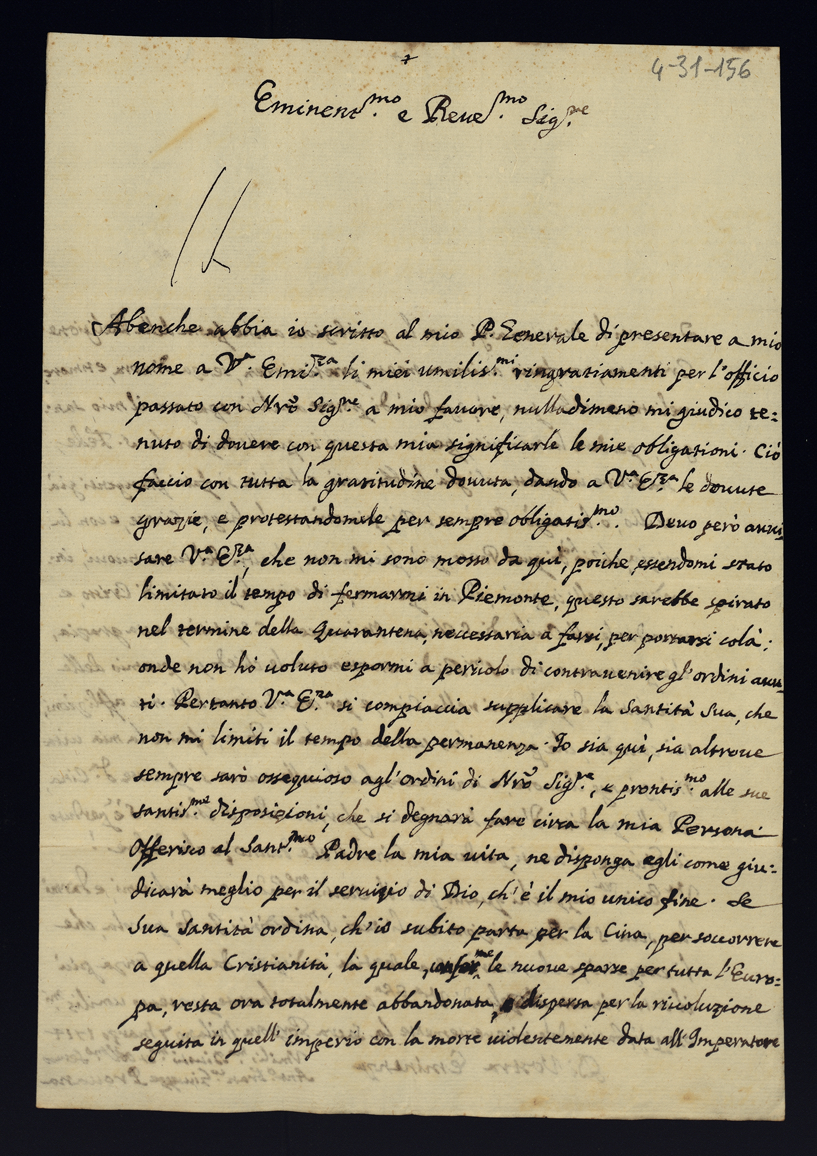 4-31-156
Eminent.mo e Reue.mo Sig.re
Abenche abbia io scritto al mio P. Generale di presentare a mio
nome a V.a Emi.za li miei umilis.mi ringratiamenti per l'officio
passato con Nrõ Sig.re a mio fauore, nulladimeno mi giudico te=
nuto di douere con questa mia significarle le mie obligationi. Ciò
faccio con tutta la gratitudine douuta, dando a V.a E.za le douute
grazie, e protestandomele per sempre obligatis.mo. Deuo però auui
sare V.a E.za, che non mi sono mosso da quì, poiche essendomi stato
limitato il tempo di fermarmi in Piemonte, questo sarebbe spirato
nel termine della Quarantena, neccessaria a farsi, per portarsi colà;
onde non hò uoluto espormi a pericolo di contrauenire gl'ordini auu-
ti. Pertanto V.a E.za si compiaccia supplicare la Santità Sua, che
non mi limiti il tempo della permanenza. Io sia quì, sia altroue
sempre sarò ossequioso agl'ordini di Nrõ Sig.re, e prontis.mo alle sue
santis.me disposizioni, che si degnarà fare circa la mia Persona
Offerisco al Sant.mo Padre la mia uita, ne disponga egli come giu=
dicarà meglio per il seruizio di Dio, ch'è il mio unico fine. Se
Sua Santità ordina, ch'io subito parta per la Cina, per soccorrere
a quella Cristianità, la quale, le nuoue sparse per tutta l'Euro=
pa, resta ora totalmente abbandonata, dispersa per la riuoluzione
seguita in quell'imperio con la morte uiolentemente data all'Imperatore